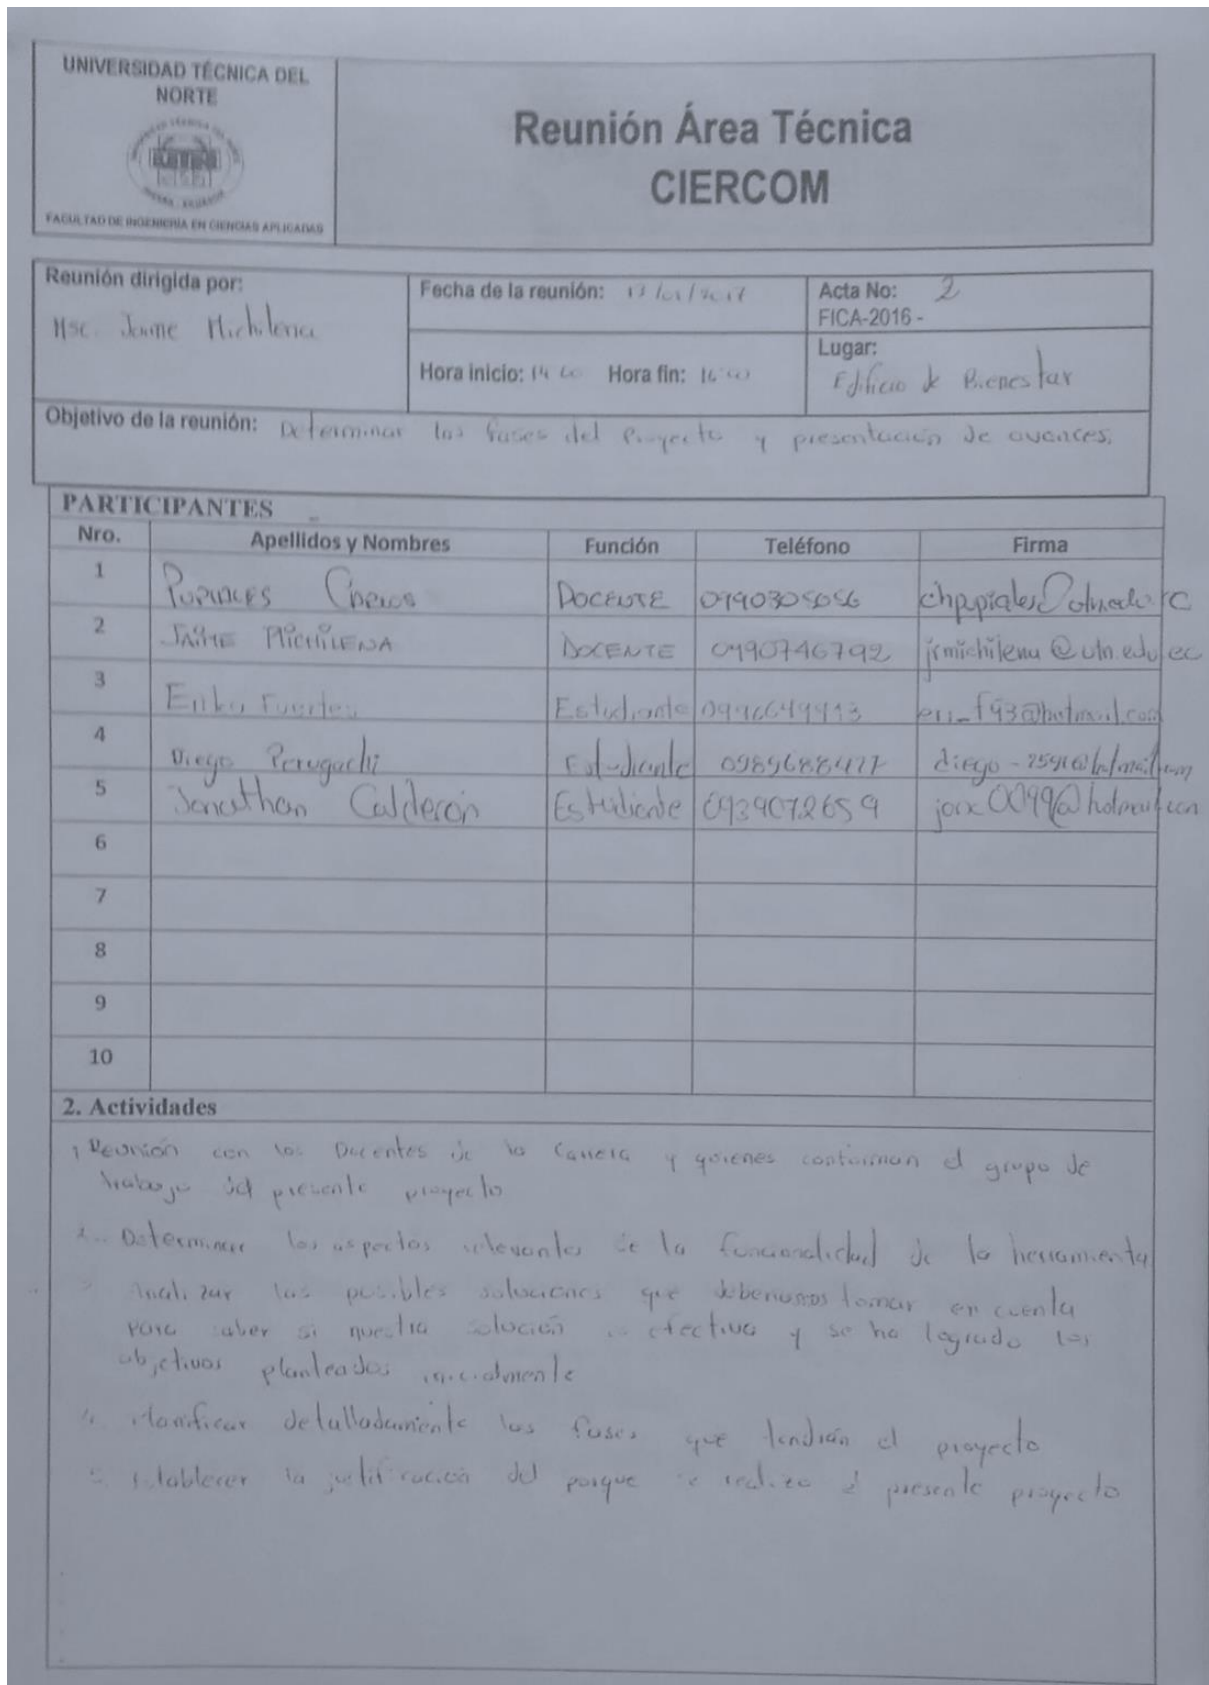 UNIVERSIDAD TÉCNICA DEL
NORTE
FACULTAD DE INGENIERÍA EN CIENCIAS APLICADAS
Reunión Área Técnica
CIERCOM
Reunión dirigida por:
Msc. Jaime Michilena
Fecha de la reunión:
Acta No: 2
FICA-2016 -
Hora inicio: Hora fin: 16:00
Lugar:
Edificio de Bienestar
Objetivo de la reunión: Determinar las fases del Proyecto y presentación de avances.
PARTICIPANTES
Nro. Apellidos y Nombres Función Teléfono Firma
1 DOCENTE 0990305056
2 JAIME MICHILENA DOCENTE 0990746792 jrmichilena@utn.edu.ec
3 Fuertes Estudiante eri_f93@hotmail.com
4 Diego Perugachi Estudiante
5 Jonathan Calderón Estudiante 0939072659
6
7
8
9
10
2. Actividades
1 Reunión con los Docentes de la Carrera y quienes conforman el grupo de
trabajo del presente proyecto
2.- Determinar los aspectos relevantes de la funcionalidad de la herramienta
3 Analizar las posibles soluciones que deberiamos tomar en cuenta
para saber si nuestra solución es efectiva y se ha logrado los
objetivos planteados inicialmente
4. Planificar detalladamente las fases que tendrán el proyecto
5. Establecer la justificación del porque se realiza el presente proyecto